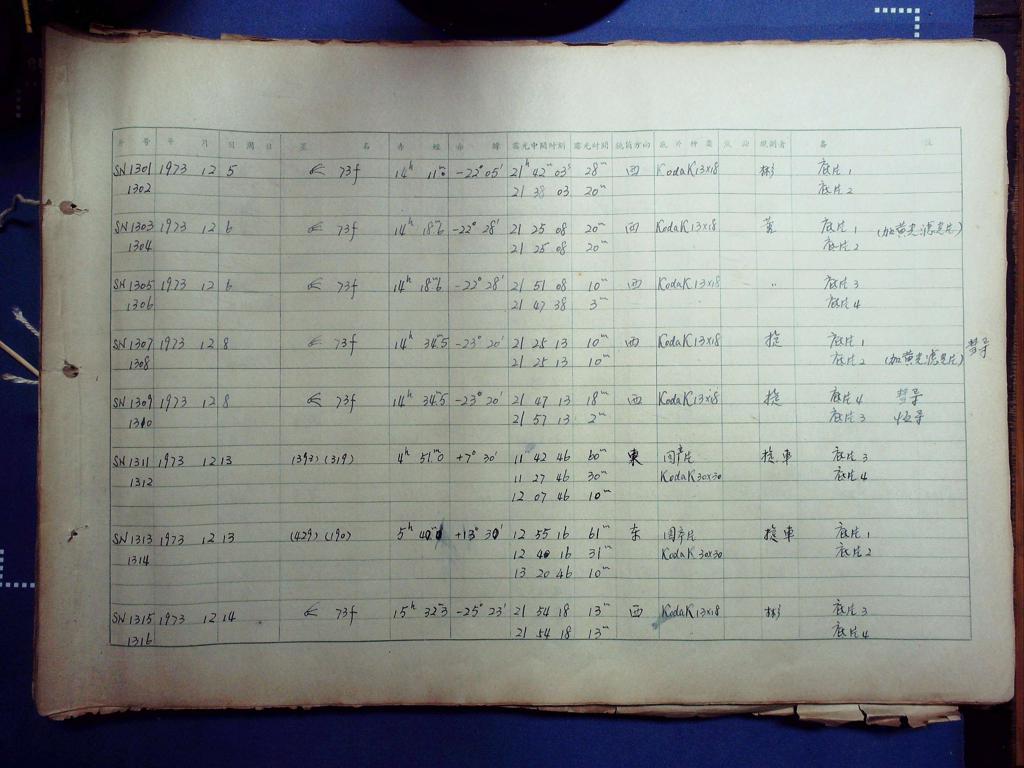 号 年 月 日 星 名 赤 経 赤 緯 露光中間时刻 露光时間 鏡筒方向 底片种类 观測者 备 註
SN1301 1973 12 5 73f 14h 11m0 -22° 05' 21h 42m 03s 28m 西 Kodak 13x18 彬 底片1
1302 21 38 03 20m 底片2
SN1303 1973 12 6 73f 14h 18m6 -22° 28' 21 25 08 20m 西 Kodak 13x18 底片1 (加黄光滤光片)
1304 21 25 08 20m 底片2
SN1305 1973 12 6 73f 14h 18m6 -22° 28' 21 51 08 10m 西 Kodak 13x18 〃 底片3
1306 21 47 38 3m 底片4
SN1307 1973 12 8 73f 14h 34m5 -23° 20' 21 25 13 10m 西 Kodak 13x18 底片1
1308 21 25 13 10m 底片2 (加黄光滤光片) 彗导
SN1309 1973 12 8 73f 14h 34m5 -23° 20' 21 47 13 18m 西 Kodak 13x18 底片4 彗导
1310 21 57 13 2m 底片3 恒导
SN1311 1973 12 13 (397) (319) 4h 51m0 +7° 30' 11 42 46 60m 東 国产片 車 底片3
1312 11 27 46 30m Kodak 30x30 底片4
12 07 46 10m
SN1313 1973 12 13 (429) (190) 5h 40m0 +13° 30' 12 55 16 61m 东 国产片 車 底片1
1314 12 40 16 31m Kodak 30x30 底片2
13 20 46 10m
SN1315 1973 12 14 73f 15h 32m3 -25° 23' 21 54 18 13m 西 Kodak 13x18 彬 底片3
1316 21 54 18 13m 底片4